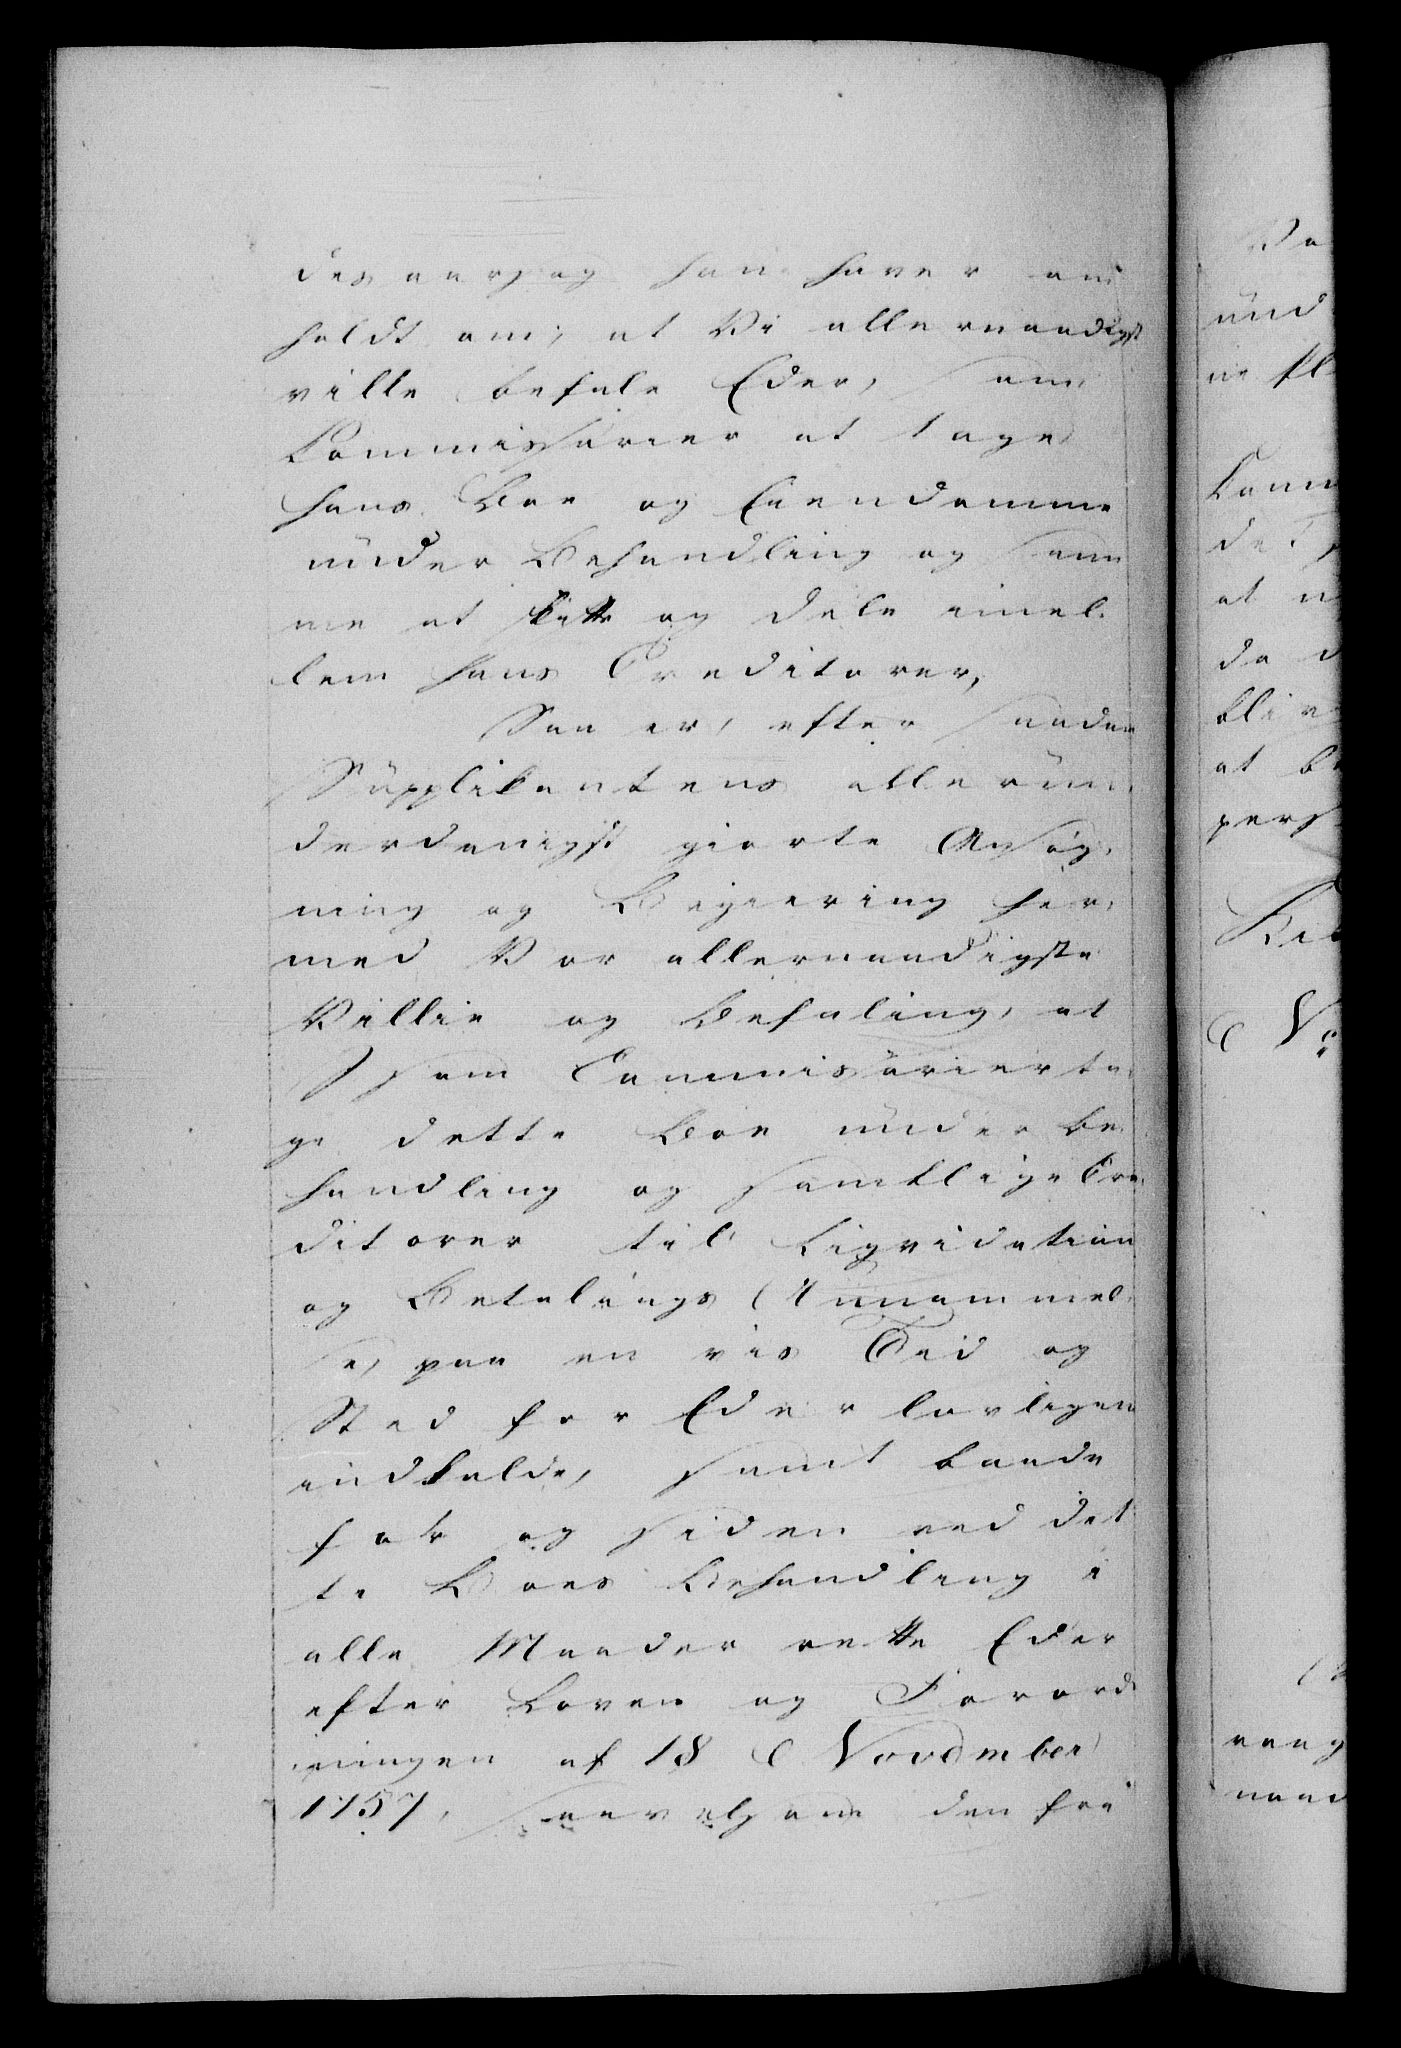 desaarsag han haver an
holdt om, at Vi allernaadigst
ville befale Eder, som
Commissarier at tage
hans Boe og Eiendomme
under Behandling og sam
me at skifte og dele imel
lem hans Creditorer,
Saa er, efter saadan
Supplikantens allerun
derdanigst giorte Ansøg
ning og Begiering her
med Vor allernaadigste
Villie og Befaling, at
I som Commissarier ta
ge dette Boe under Be
handling og samtlige Cre
ditorer til Liqvidation
og Betalings Annammel
se, paa en vis Tid og
Sted for Eder lovligen
indkalde, samt baade
før og siden ved det
te Boes Behandling i
alle Maader rette Eder
efter Loven og Forord
ningen af 18 November
1757, saavelsom den frie